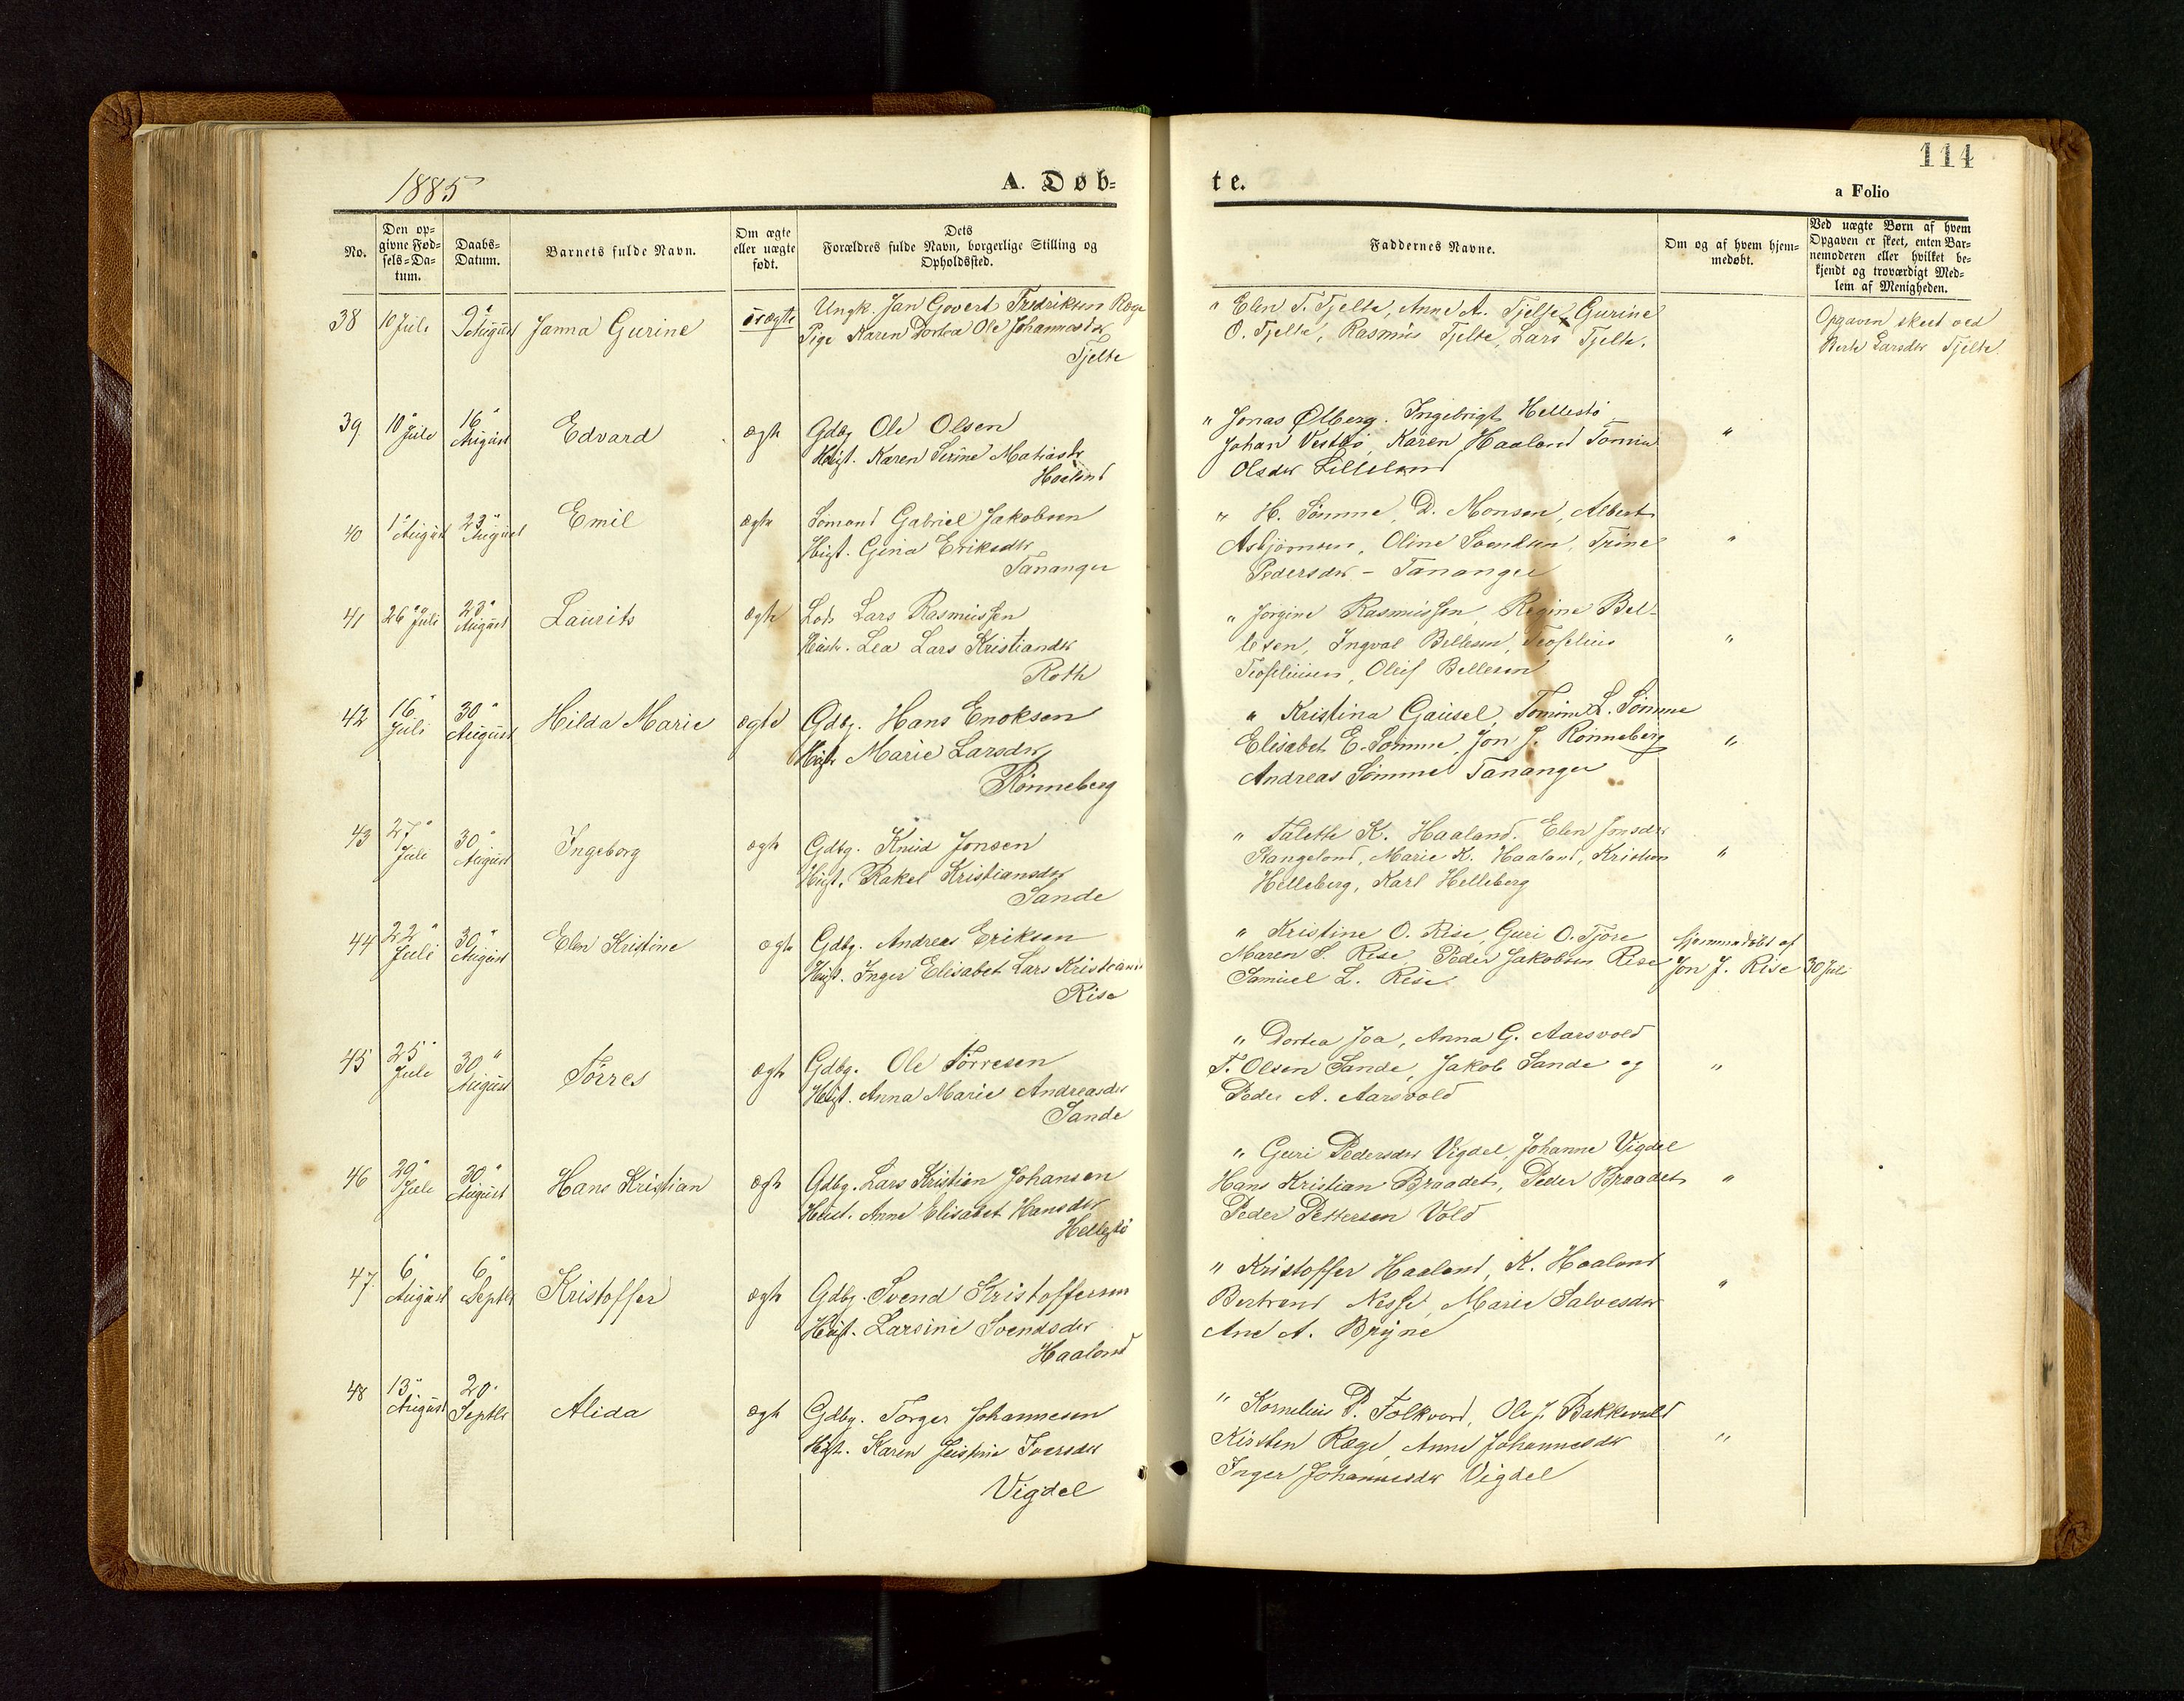 1885
A. Døb-
No.
Den op-
givne Fød-
sels-Da-
tum.
Daabs-
Datum.
Barnets fulde Navn.
Om ægte
eller uægte
født.
Dets
Forældres fulde Navn, borgerlige Stilling og
Opholdssted.
38 10 Juli 9" August Janna Gurine uægte
Ungk. Jan Govert Fredriksen Ræge
Pige Karen Dortea Ole Johannesdtr
Tjelte
39 10" Juli 16" August Edvard ægte
Gdbg Ole Olsen
Hust. Karen Serine Matiasdr
Haaland
40 1" August 23" August Emil ægte
Sømand Gabriel Jakobsen
Hust. Gina Eriksdtr
Tananger
41 26" Juli 23" August Laurits ægte
Lods Lars Rasmussen
Hustr. Lea Lars Kristiandtr
Roth
42 16" Juli 30" August Hilda Marie ægte
Gdbg. Hans Enoksen
Hust Marie Larsdtr
Rønneberg
43 27" Juli 30" August Ingeborg ægte
Gdbg. Knud Jonsen
Hust. Rakel Kristiansdtr
Sande
44 22" Juli 30" August Elen Kristine ægte
Gdbg. Andreas Eriksen
Hust. Inger Elisabet Lars Kristians
Rise
45 25" Juli 30" August Tørres ægte
Gdbg. Ole Tørresen
Hust. Anna Marie Andreasdtr
Sande
46 29" Juli 30" August Hans Kristian ægte
Gdbg. Lars Kristian Johansen
Hust. Anne Elisabet Hansdtr
Hellestø
47. 6" August 6" Septbr Kristoffer ægte
Gdbg. Svend Kristoffersen
Hust. Larsine Svendsdtr
Haaland
48 13" August 20. Septbr Alida ægte
Gdbg. Torger Johannesen
Hust. Karen Iversdtr
Vigdel
te.
114
a Folio
Faddernes Navne.
Om og af hvem hjem-
medøbt.
Ved uægte Børn af hvem
Opgaven er skeet, enten Bar-
nemoderen eller hvilket be-
kjendt og troværdigt Med-
lem af Menigheden.
" Elen T. Tjelte, Anne A. Tjelte, Gurine
O. Tjelte, Rasmus Tjelte, Lars Tjelte.
Opgaven skeet ved
Berte Larsdtr Tjelte.
" Jonas Ølberg. Ingebrigt Hellestø
Johan Vestbø, Karen Haaland "
Olsdtr Lilleland
" H. Sømme, D. Monsen, Albert
Asbjørnsen, Oline Svendsen, Trine "
Pedersdtr - Tananger
" Jorgine Rasmussen, Regine Bel-
lesen, Ingval Bellesen, Teofelius "
Teofeliusen, Oleif Bellesen
" Kristina Gausel, L. Sømme
Elisabet E. Sømme, Jon J. Rønneberg "
Andreas Sømme Tananger
" Talette K. Haaland. Elen Jonsdtr
Stangeland, Marie K. Haaland, Kristian "
Helleberg, Karl Helleberg
" Kristine O. Rise, Guri O. Tjore
Maren S. Rise, Peder Jakobsen Rise
Samuel L. Rise.
hjemmedøbt af
Jon J. Rise 30 Juli
" Dortea Joa, Anna G. Aarsvold
T. Olsen Sande, Jakob Sande og "
Peder A. Aarsvold
" Guri Pedersdtr Vigdel, Johanne Vigdel
Hans Kristian Braadet, Peder Braadet "
Peder Pettersen Vold
" Kristoffer Haaland, K. Haaland
Bertrand Nesse, Marie Salvesdtr "
Ane A. Bryne
" Kornelius P. Folkvord, Ole J. Bakkevold
Kirsten Ræge, Anne Johannesdtr "
Inger Johannesdtr Vigdel